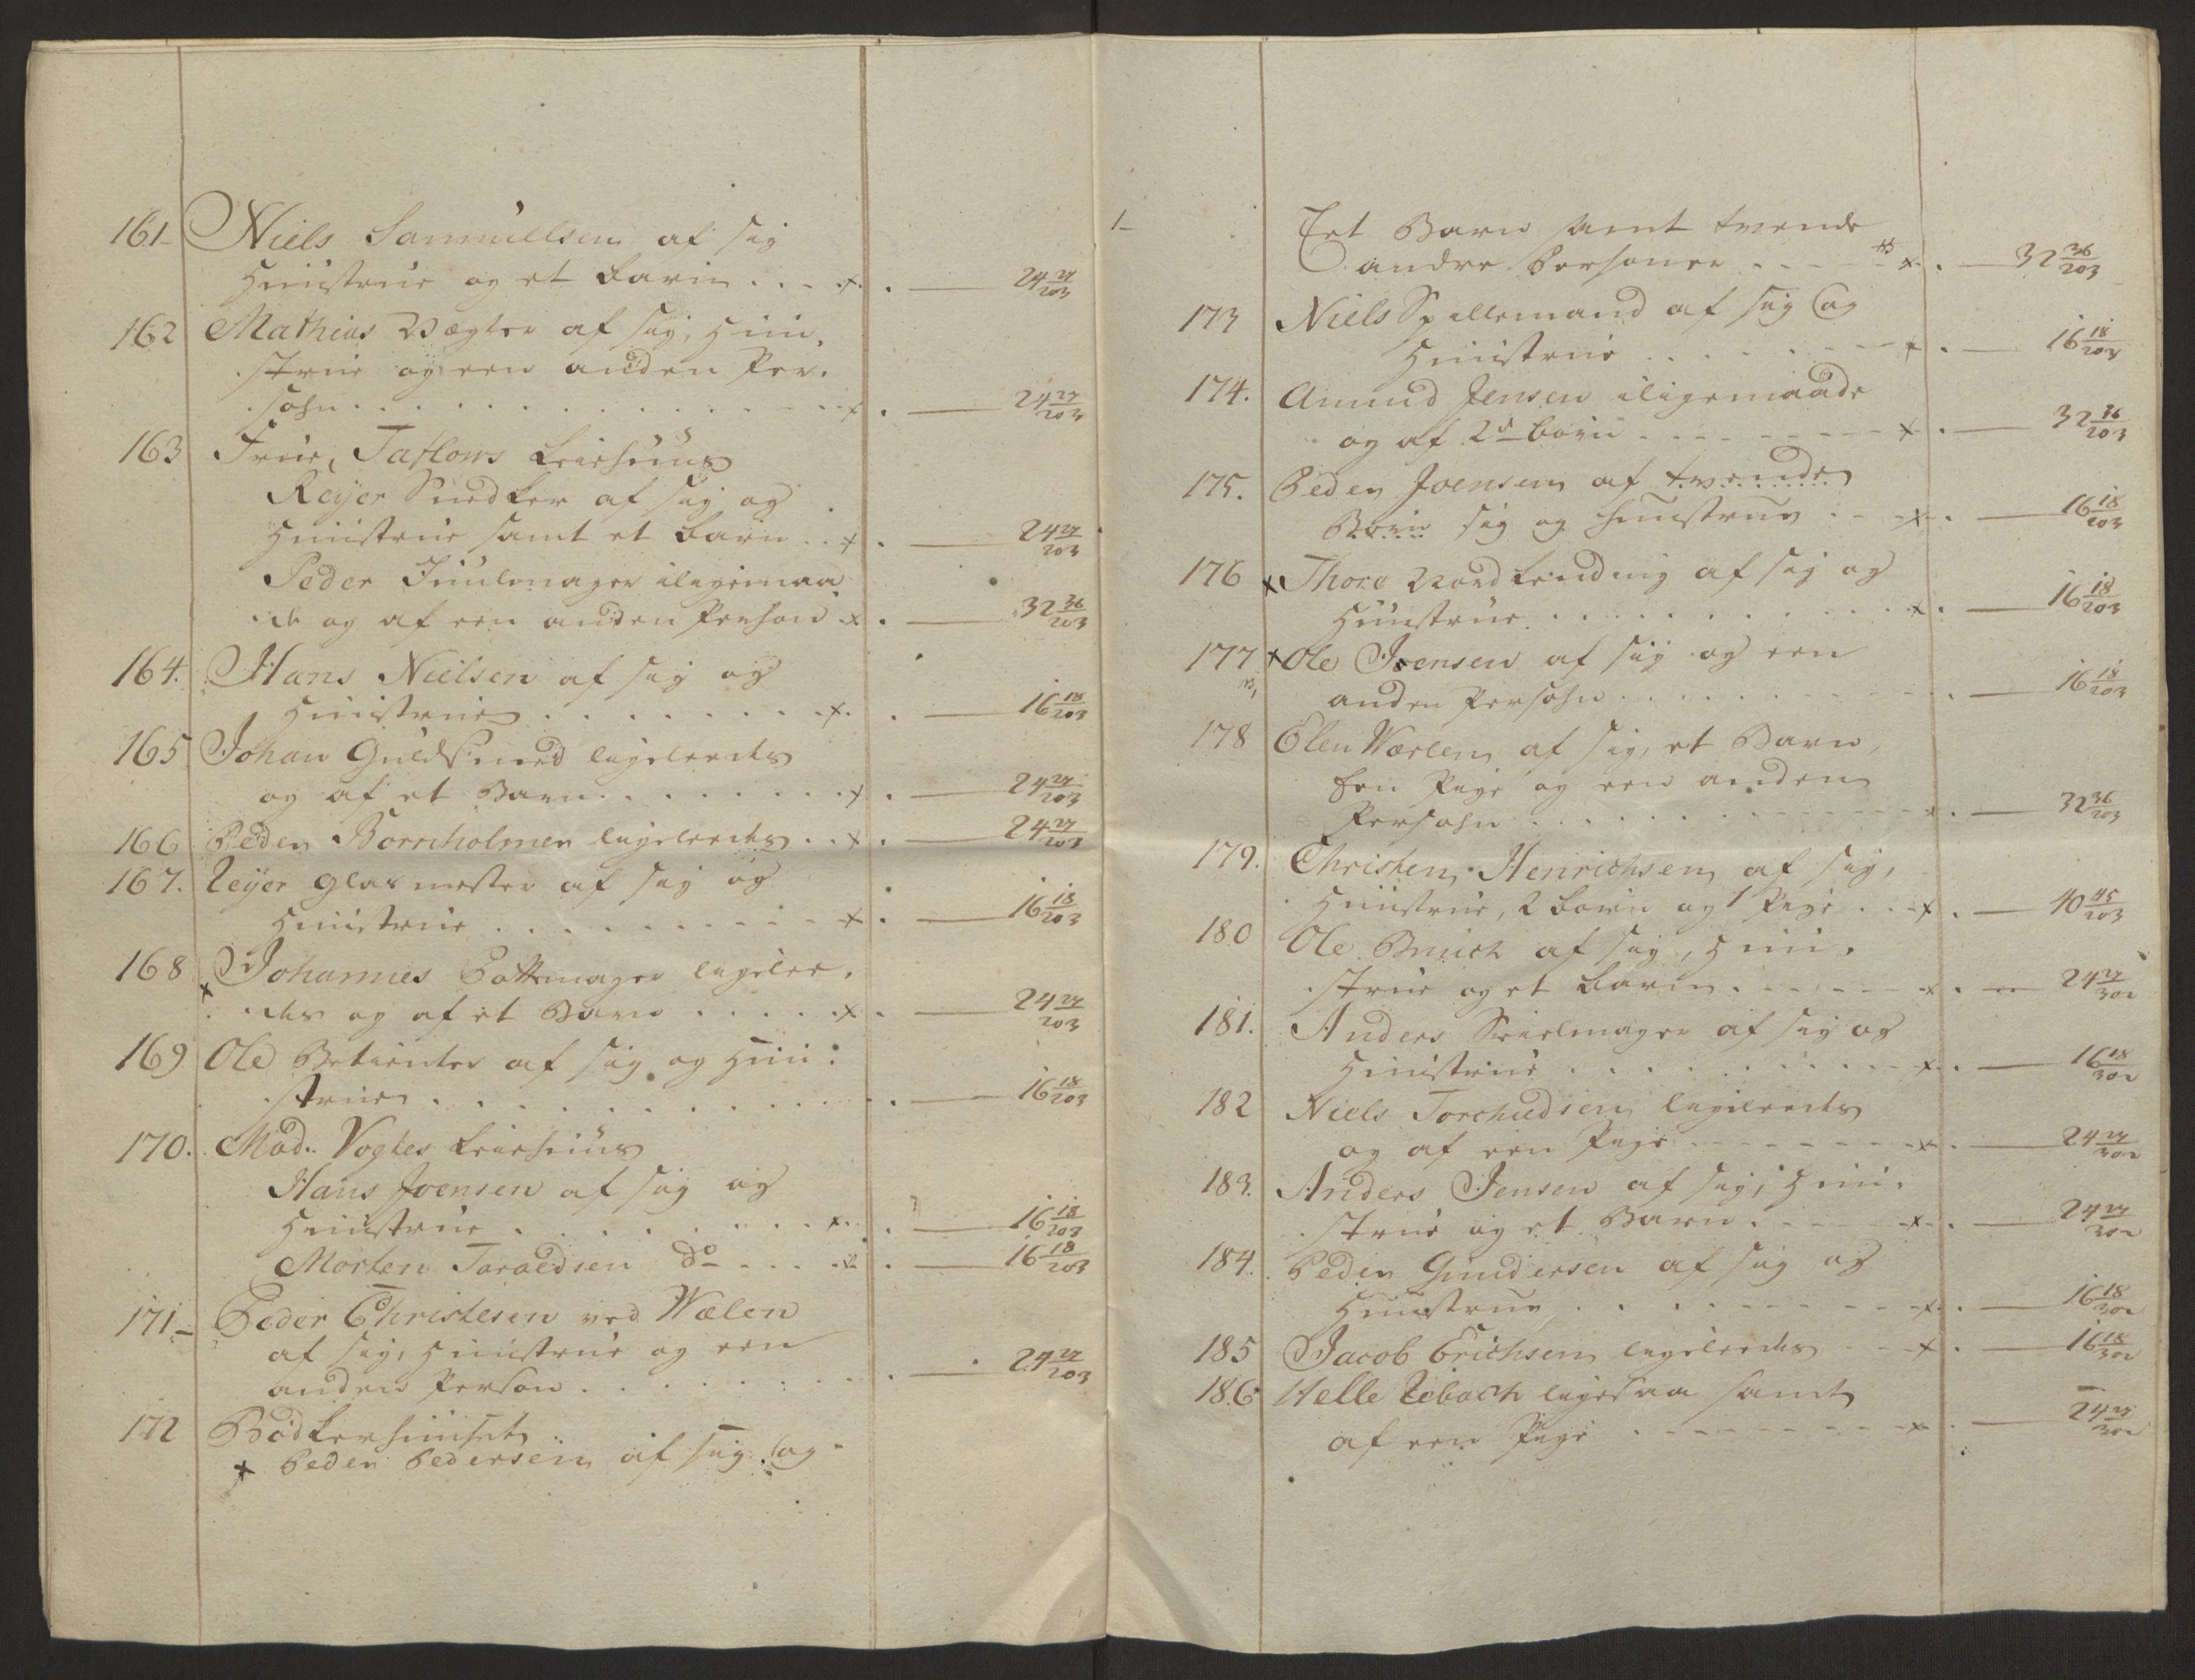 161_ Niels Samuellsen af sig
Huustrue og et barn . . - . x . . — 24 27/203
162 Mathias Vægter af sig, Huu.
.strue og een anden Per.
.sohn . . . . . . . . . . x . — 24 27/203
163 Frue, Taflows Leiehuus
Reyer Snedker af sig og
Huustrue samt et barn . . x . — 24 27/203
Peder Juulmager iligemaa
.de og af een anden Person . x . — 32 36/203
164. Hans Nielsen af sig og
Huustrue . . . . . . . . x . . — 16 18/203
165 Johan Guldsmed ligeleedes
og af et Barn . . . . . . . x . — 24 27/203
166 Peder Bornholmer ligeleedes . . x . — 24 27/203
167. Reyer Glasmester af sig og
Huustrue . . . . . . . . . x . — 16 18/203
168 x Johannes Pottemager ligelee.
.des og af et Barn . . . . . x . — 24 27/203
169 Ole Betienter af sig og Huu.
.strue . . . . . . . . . . . — 16 18/203
170. Mad. Vogtes Leiehuus
Hans Joensen af sig og
Huustrue . . . . . . . . x . . — 16 18/203
Morten Taraldsen do . . . . x . — 16 18/203
171_ Peder Christesen ved Wælen
af sig, Huustrue og een
anden Person . . . . . . . . . — 24 27/203
172 Bødkerhuuset
x Peder Pedersen af sig og
1_
Eet Barn samt tvende
andre Personer . . - - - x . . — 32 36/203
173 Niels Spillemand af sig og
Huustrue . . . . . . . - x . — 16 18/203
174. Amund Jensen iligemaade
og af 2de børn . - - - - - - x . — 32 36/203
175. Peder Joensen af tvende
Børn sig og Huustrue . - - x . — 16 18/203
176 x Thore Nordlending af sig og
Huustrue . . . . . . . . . x . — 16 18/203
177 x Ole Joensen af sig og een
anden Persohn . . . . . . . . . — 16 18/203
178 Elen Wærlen af sig, et Barn,
Een Pige og een anden
Persohn . . . . . . . . . . x . — 32 36/203
179. Christen Henrichsen af sig,
Huustrue, 2 børn og 1 Pige . . x . — 40 45/203
180 Ole Bruich af sig, Huu.
.strue og et barn . - - - - x . — 24 27/302
181. Anders Seielmager af sig og
Huustrue . . . . . . . . . x . . — 16 18/302
182 Niels Torchildsen ligeleedes
og af een Pige . - - - - - x . . — 24 27/302
183. Anders Jensen af sig, Huu.
.strue og et Barn . - - - - x . . — 24 27/302
184. Peder Gundersen af sig og
Huustrue . . . . . - - - - x . . — 16 18/302
185 Jacob Erichsen ligeleedes . - - x . — 16 18/302
186 Helle Rebach ligesaa samt
af een Pige . - - - - - - x . — 24 27/302